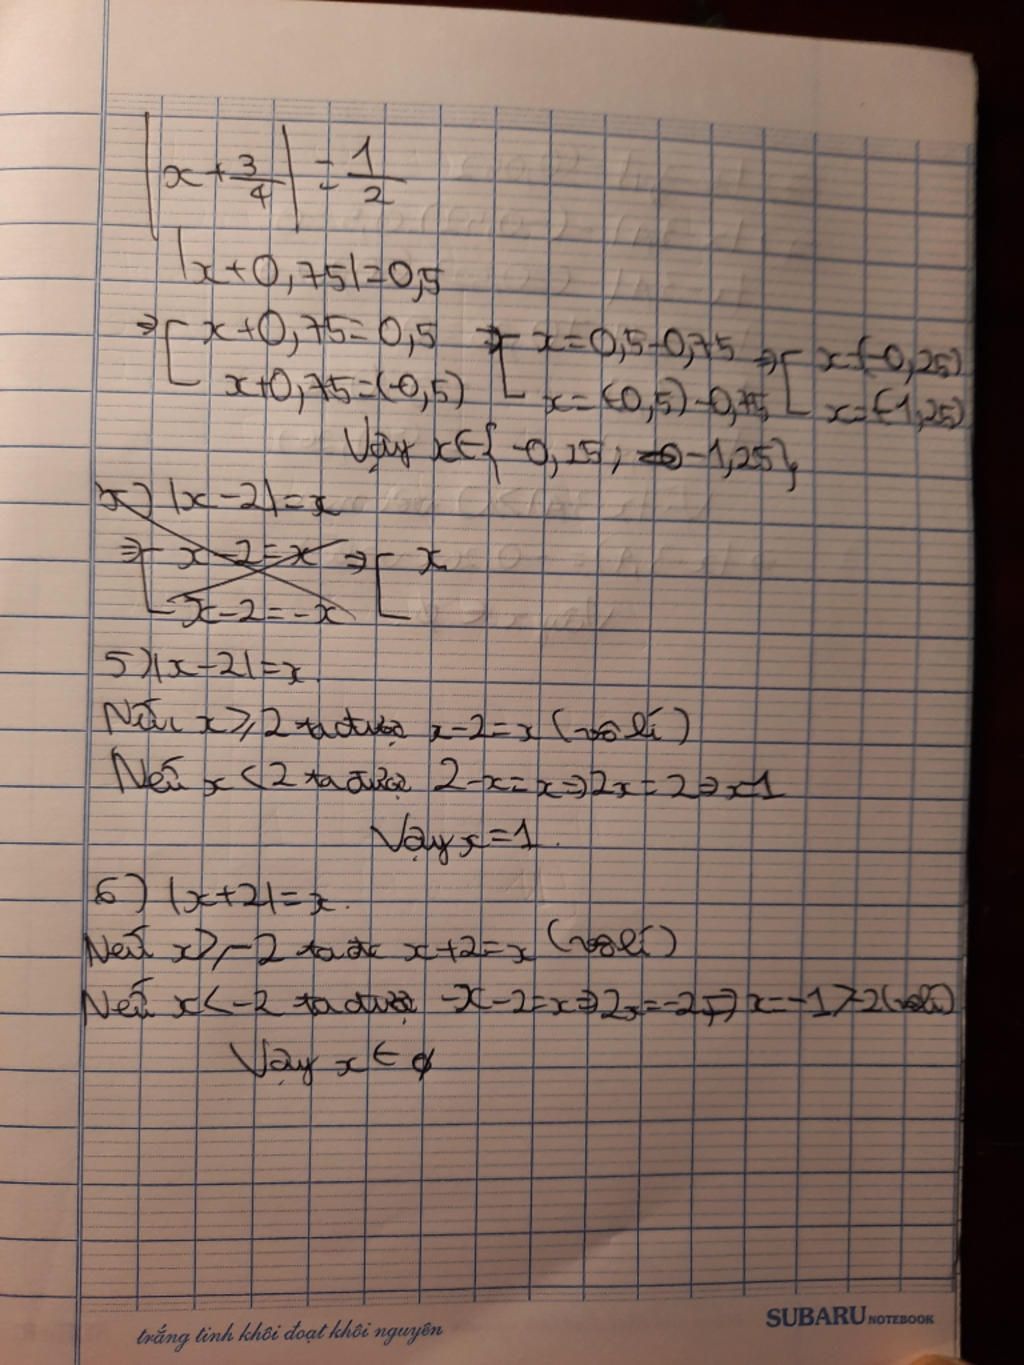 |x + 3/4| = 1/2
|x+0,75|=0,5
⇒[ x+0,75=0,5 ⇒[ x=0,5-0,75 ⇒[ x=(-0,25)
x+0,75=(-0,5) x=(-0,5)-0,75 x=(-1,25)
Vậy x∈{-0,25; -1,25}
|x-2|=x
⇒[ x-2=x ⇒[ x
x-2=-x
5) |x-2|=x.
Nếu x≥2 ta được x-2=x (vô lí)
Nếu x<2 ta được 2-x=x⇒2x=2⇒x=1
Vậy x=1.
6) |x+2|=x.
Nếu x≥-2 ta đc x+2=x (vô lí)
Nếu x<-2 ta được -x-2=x⇒2x=-2⇒x=-1>-2(vô lí)
Vậy x∈ϕ
trắng tinh khôi đoạt khôi nguyên
SUBARU NOTEBOOK